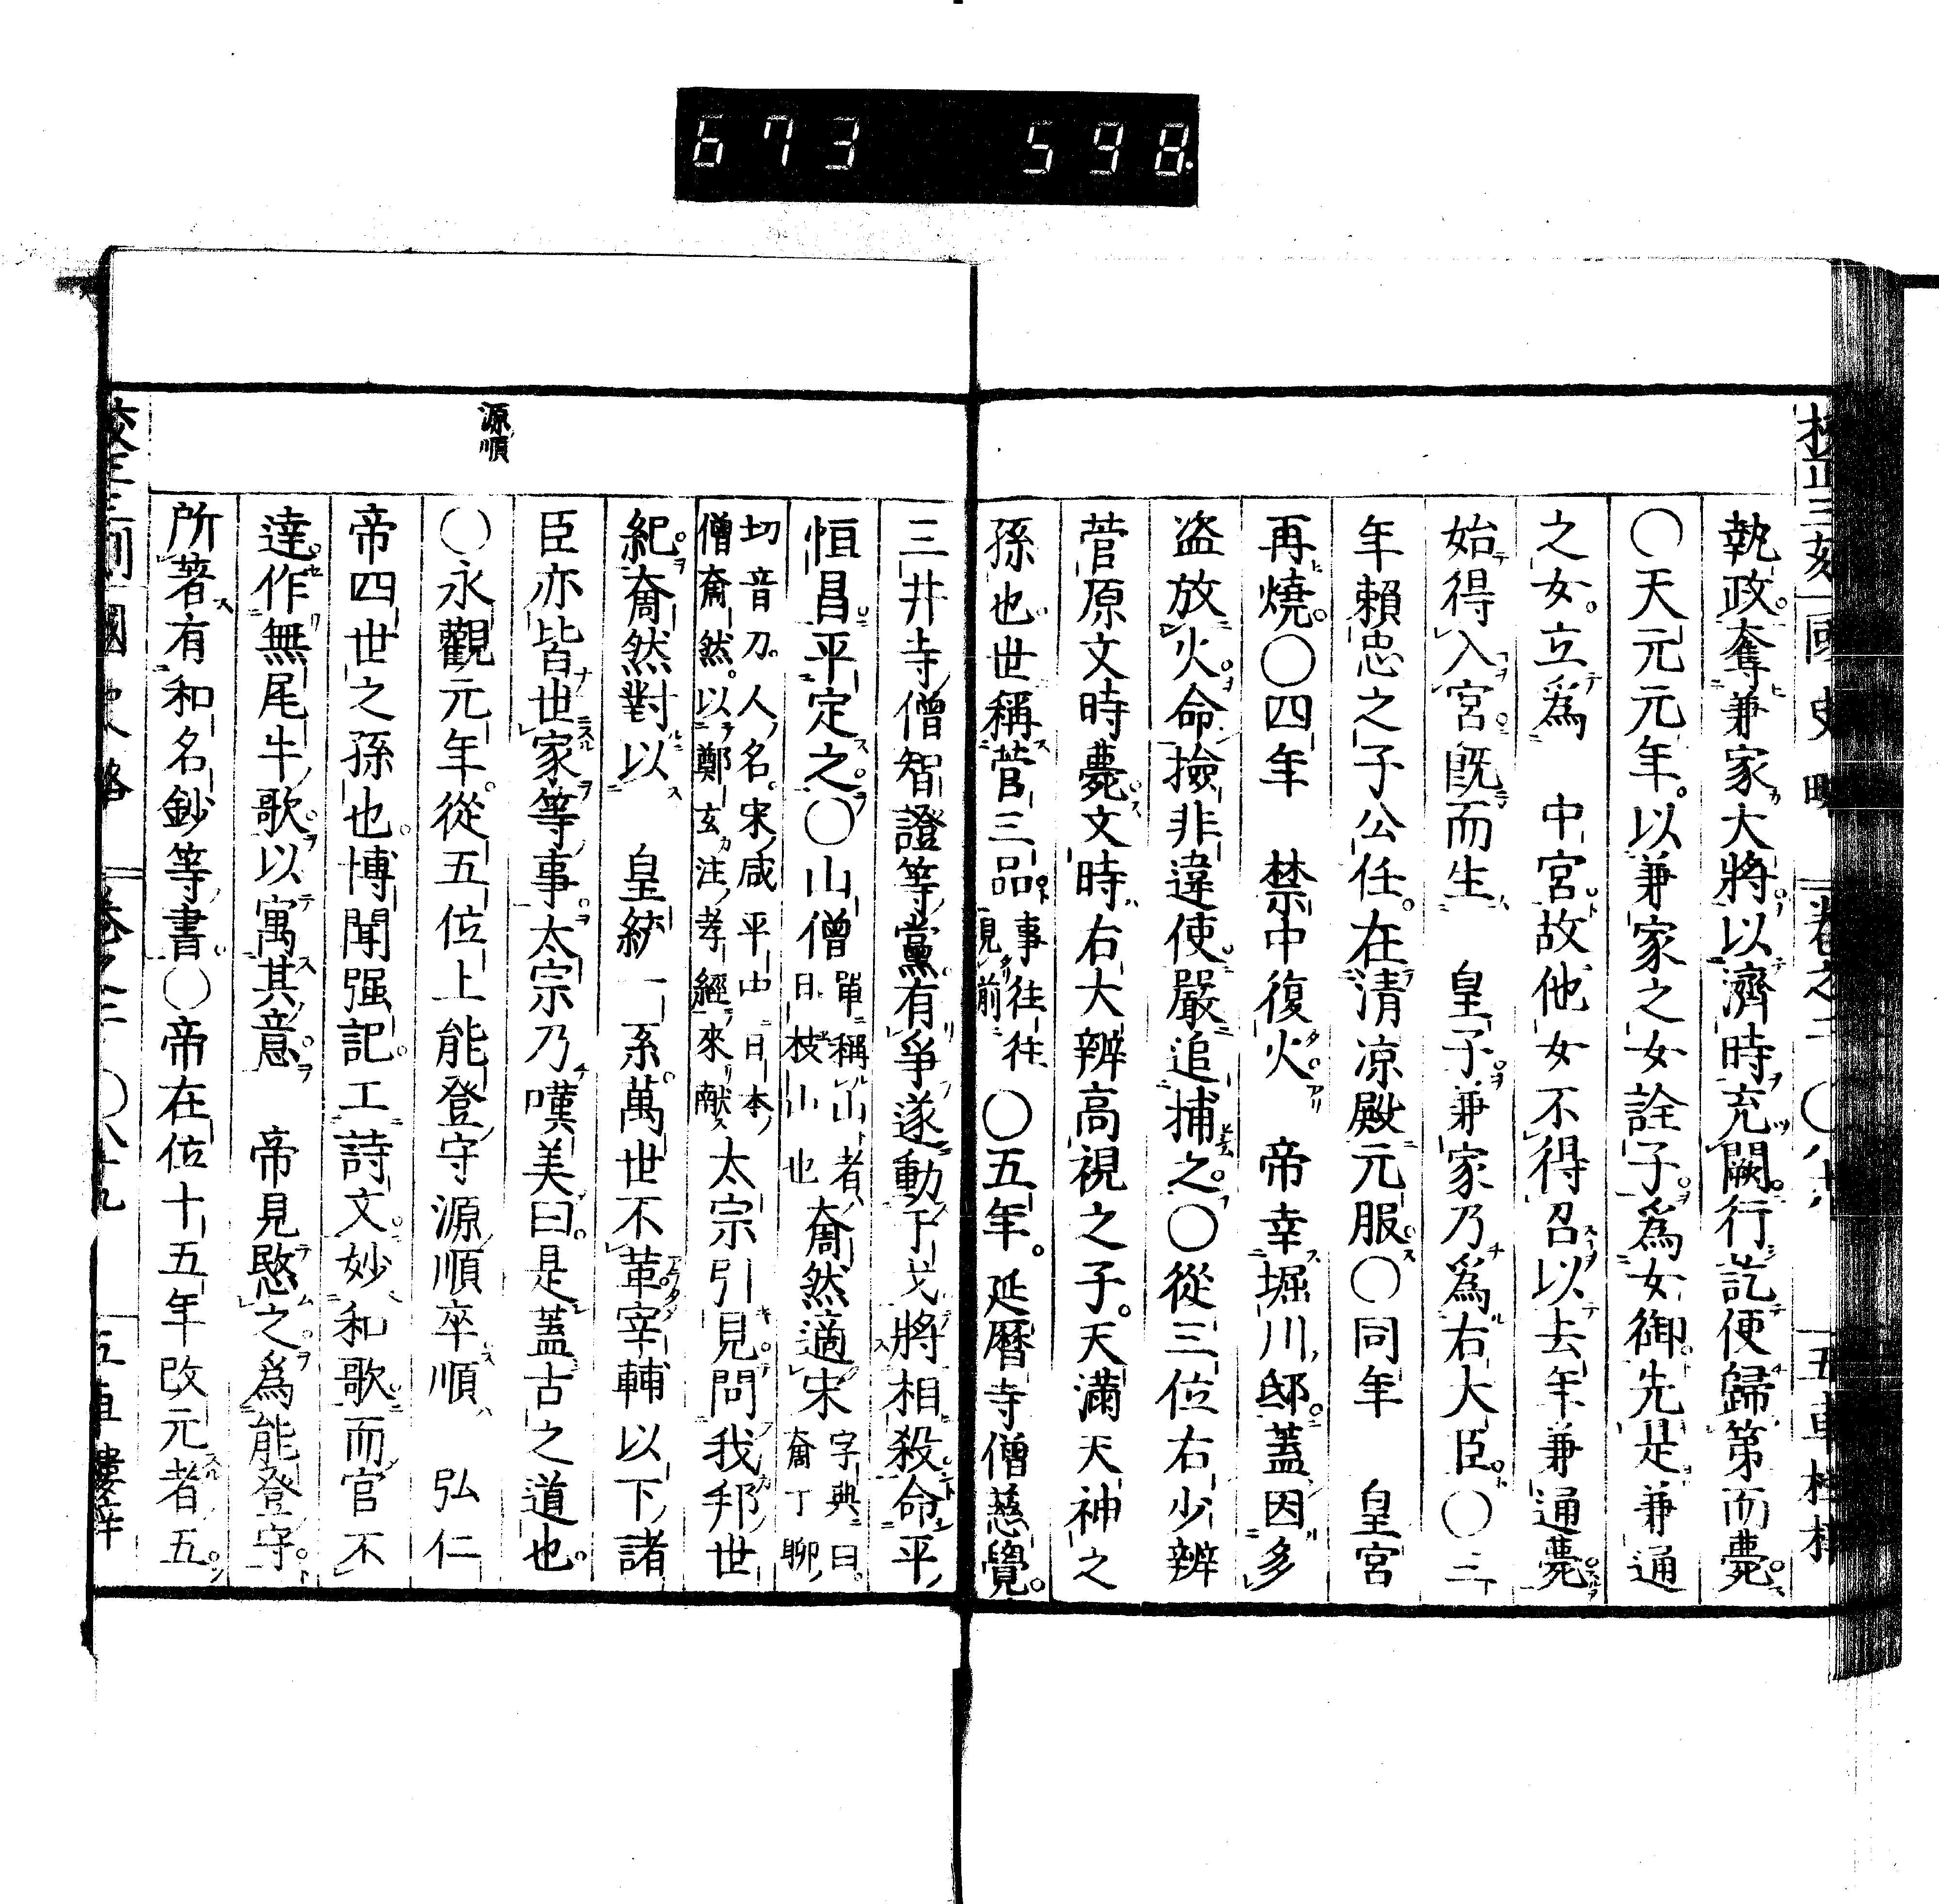 673 598
執政。奪兼家大將以濟時充闕。行訖便歸第而薨。
○天元元年。以兼家之女詮子。爲女御。先是兼通
之女。立爲 中宮故他女不得召以去年兼通薨
始得入宮。既而生 皇子。兼家乃爲右大臣。○三
年賴忠之子公任。在清凉殿元服○同年 皇宮
再燒。○四年 禁中復火 帝幸堀川邸。蓋因多
盗放火。命撿非違使。嚴追捕之。○從三位右少辨
菅原文時薨。文時右大辨高視之子。天滿天神之
孫也世稱菅三品。事往往見前○五年。延曆寺僧慈覺。
三井寺僧智證等黨有爭遂動干戈將相殺。命平
恒昌平定之。○山僧單稱山者日枝山也奝然適宋字典曰。奝丁聊
切音刀。人名。宋咸平中日本僧奝然。以鄭玄注孝經來献太宗引見。問我邦世
紀。奝然對以 皇統一系萬世不革宰輔以下諸
臣亦皆世家等事。太宗乃嘆美曰。是蓋古之道也。
○永觀元年。從五位上能登守源順卒順 弘仁
帝四世之孫也。博聞强記。工詩文。妙和歌。而官不
達。作無尾牛歌。以寓其意 帝見愍之。爲能登守。
所著有和名鈔等書○帝在位十五年改元者五。
源順